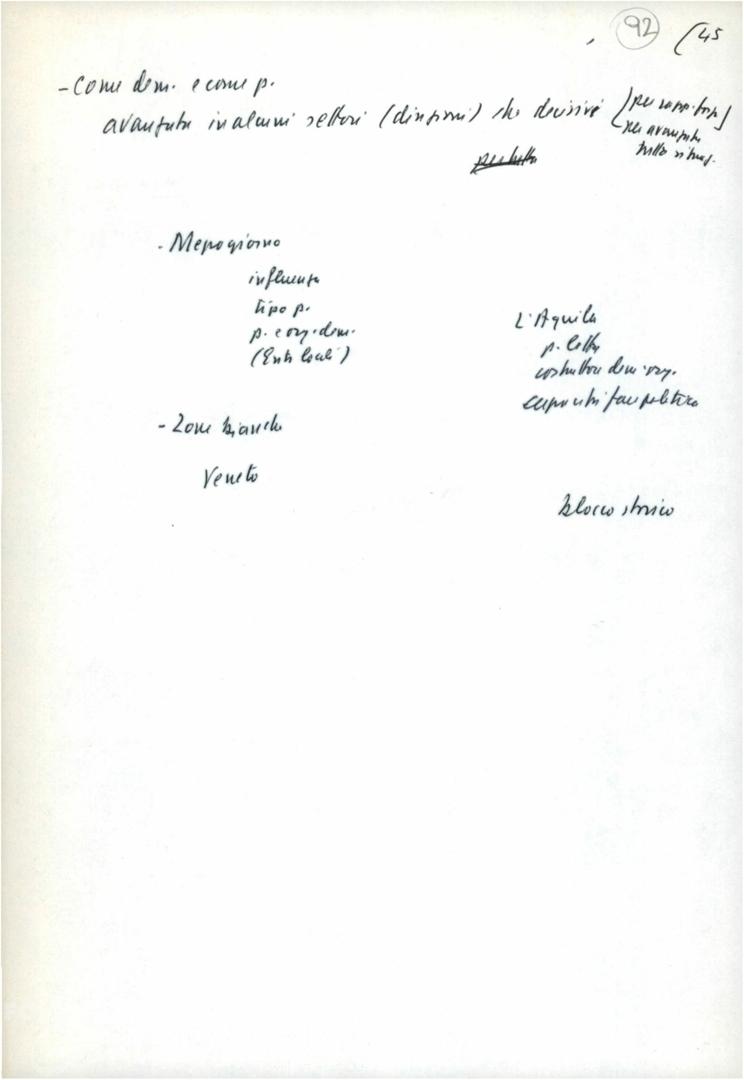 92 (45
- Come dem. e come p.
avanzata in alcuni settori (direzioni) che decisive [per rapp. forza]
per avanzata
tutto
- Mezzogiorno
influenza
tipo p.
p. e org. dem.
(Enti locali)
L'Aquila
p. lotta
costruttore dem. org.
capacità fare politica
- Zone bianche
Veneto
blocco storico